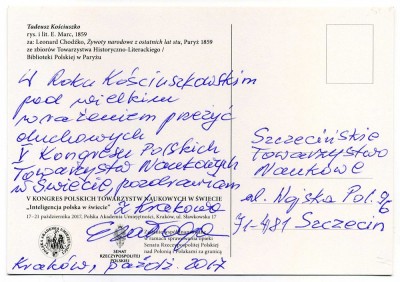 Tadeusz Kościuszko
rys. i lit. E. Marc, 1859
za: Leonard Chodźko, Żywoty narodowe z ostatnich lat stu, Paryż 1859
ze zbiorów Towarzystwa Historyczno-Literackiego /
Biblioteki Polskiej w Paryżu
W Roku Kościuszkowskim
pod wielkim
wrażeniem przeżyć
duchowych
V Kongresu Polskich
Towarzystw Naukowych
w Świecie, pozdrawiam
z Krakowa
V KONGRES POLSKICH TOWARZYSTW NAUKOWYCH W ŚWIECIE
"Inteligencja polska w świecie"
17–21 października 2017, Polska Akademia Umiejętności, Kraków, ul. Sławkowska 17
SENAT
RZECZYPOSPOLITEJ
POLSKIEJ
w ramach sprawowania opieki
Senatu Rzeczypospolitej Polskiej
nad Polonią i Polakami za granicą
Kraków, paźdz. 2017
Szczecińskie
Towarzystwo
Naukowe
ul. Wojska Pol.
71-481 Szczecin